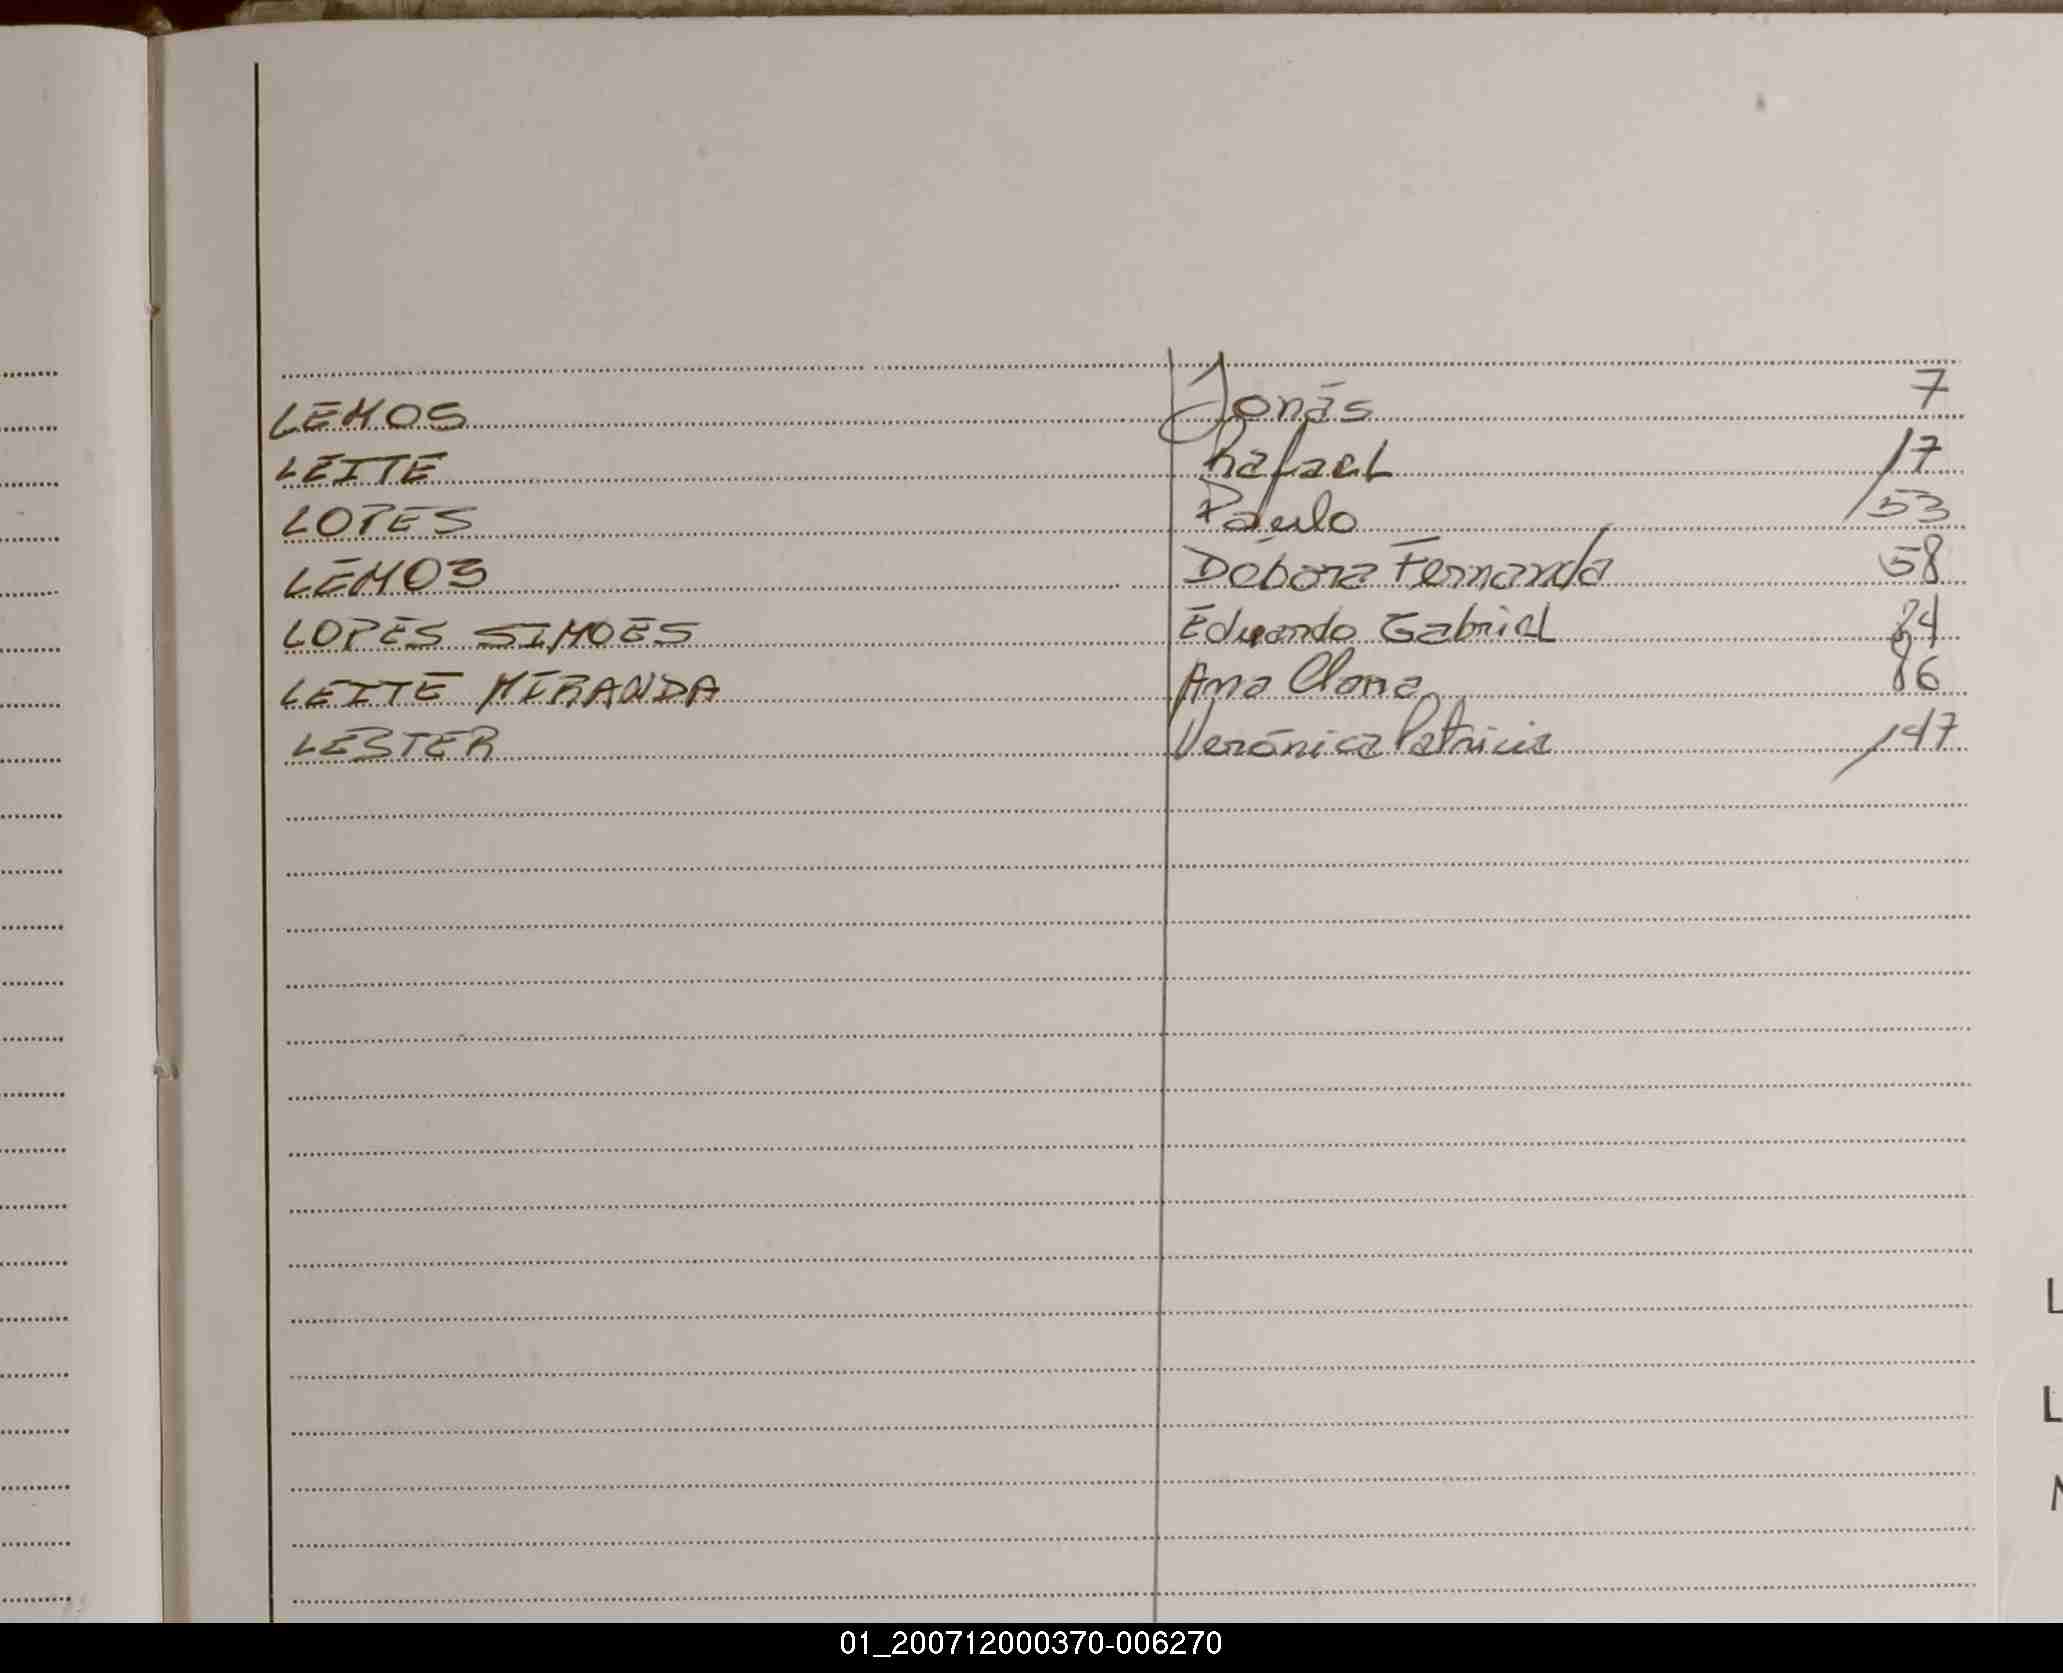 LEMOS Jonás 7
LEITE Rafael 17
LOPES Paulo 53
LEMOS Débora Fernanda 58
LOPES SIMOES Eduardo Gabriel 84
LEITE MIRANDA Ana Clara 86
LESTER Verónica Patricia 147
L
L
01_200712000370-006270